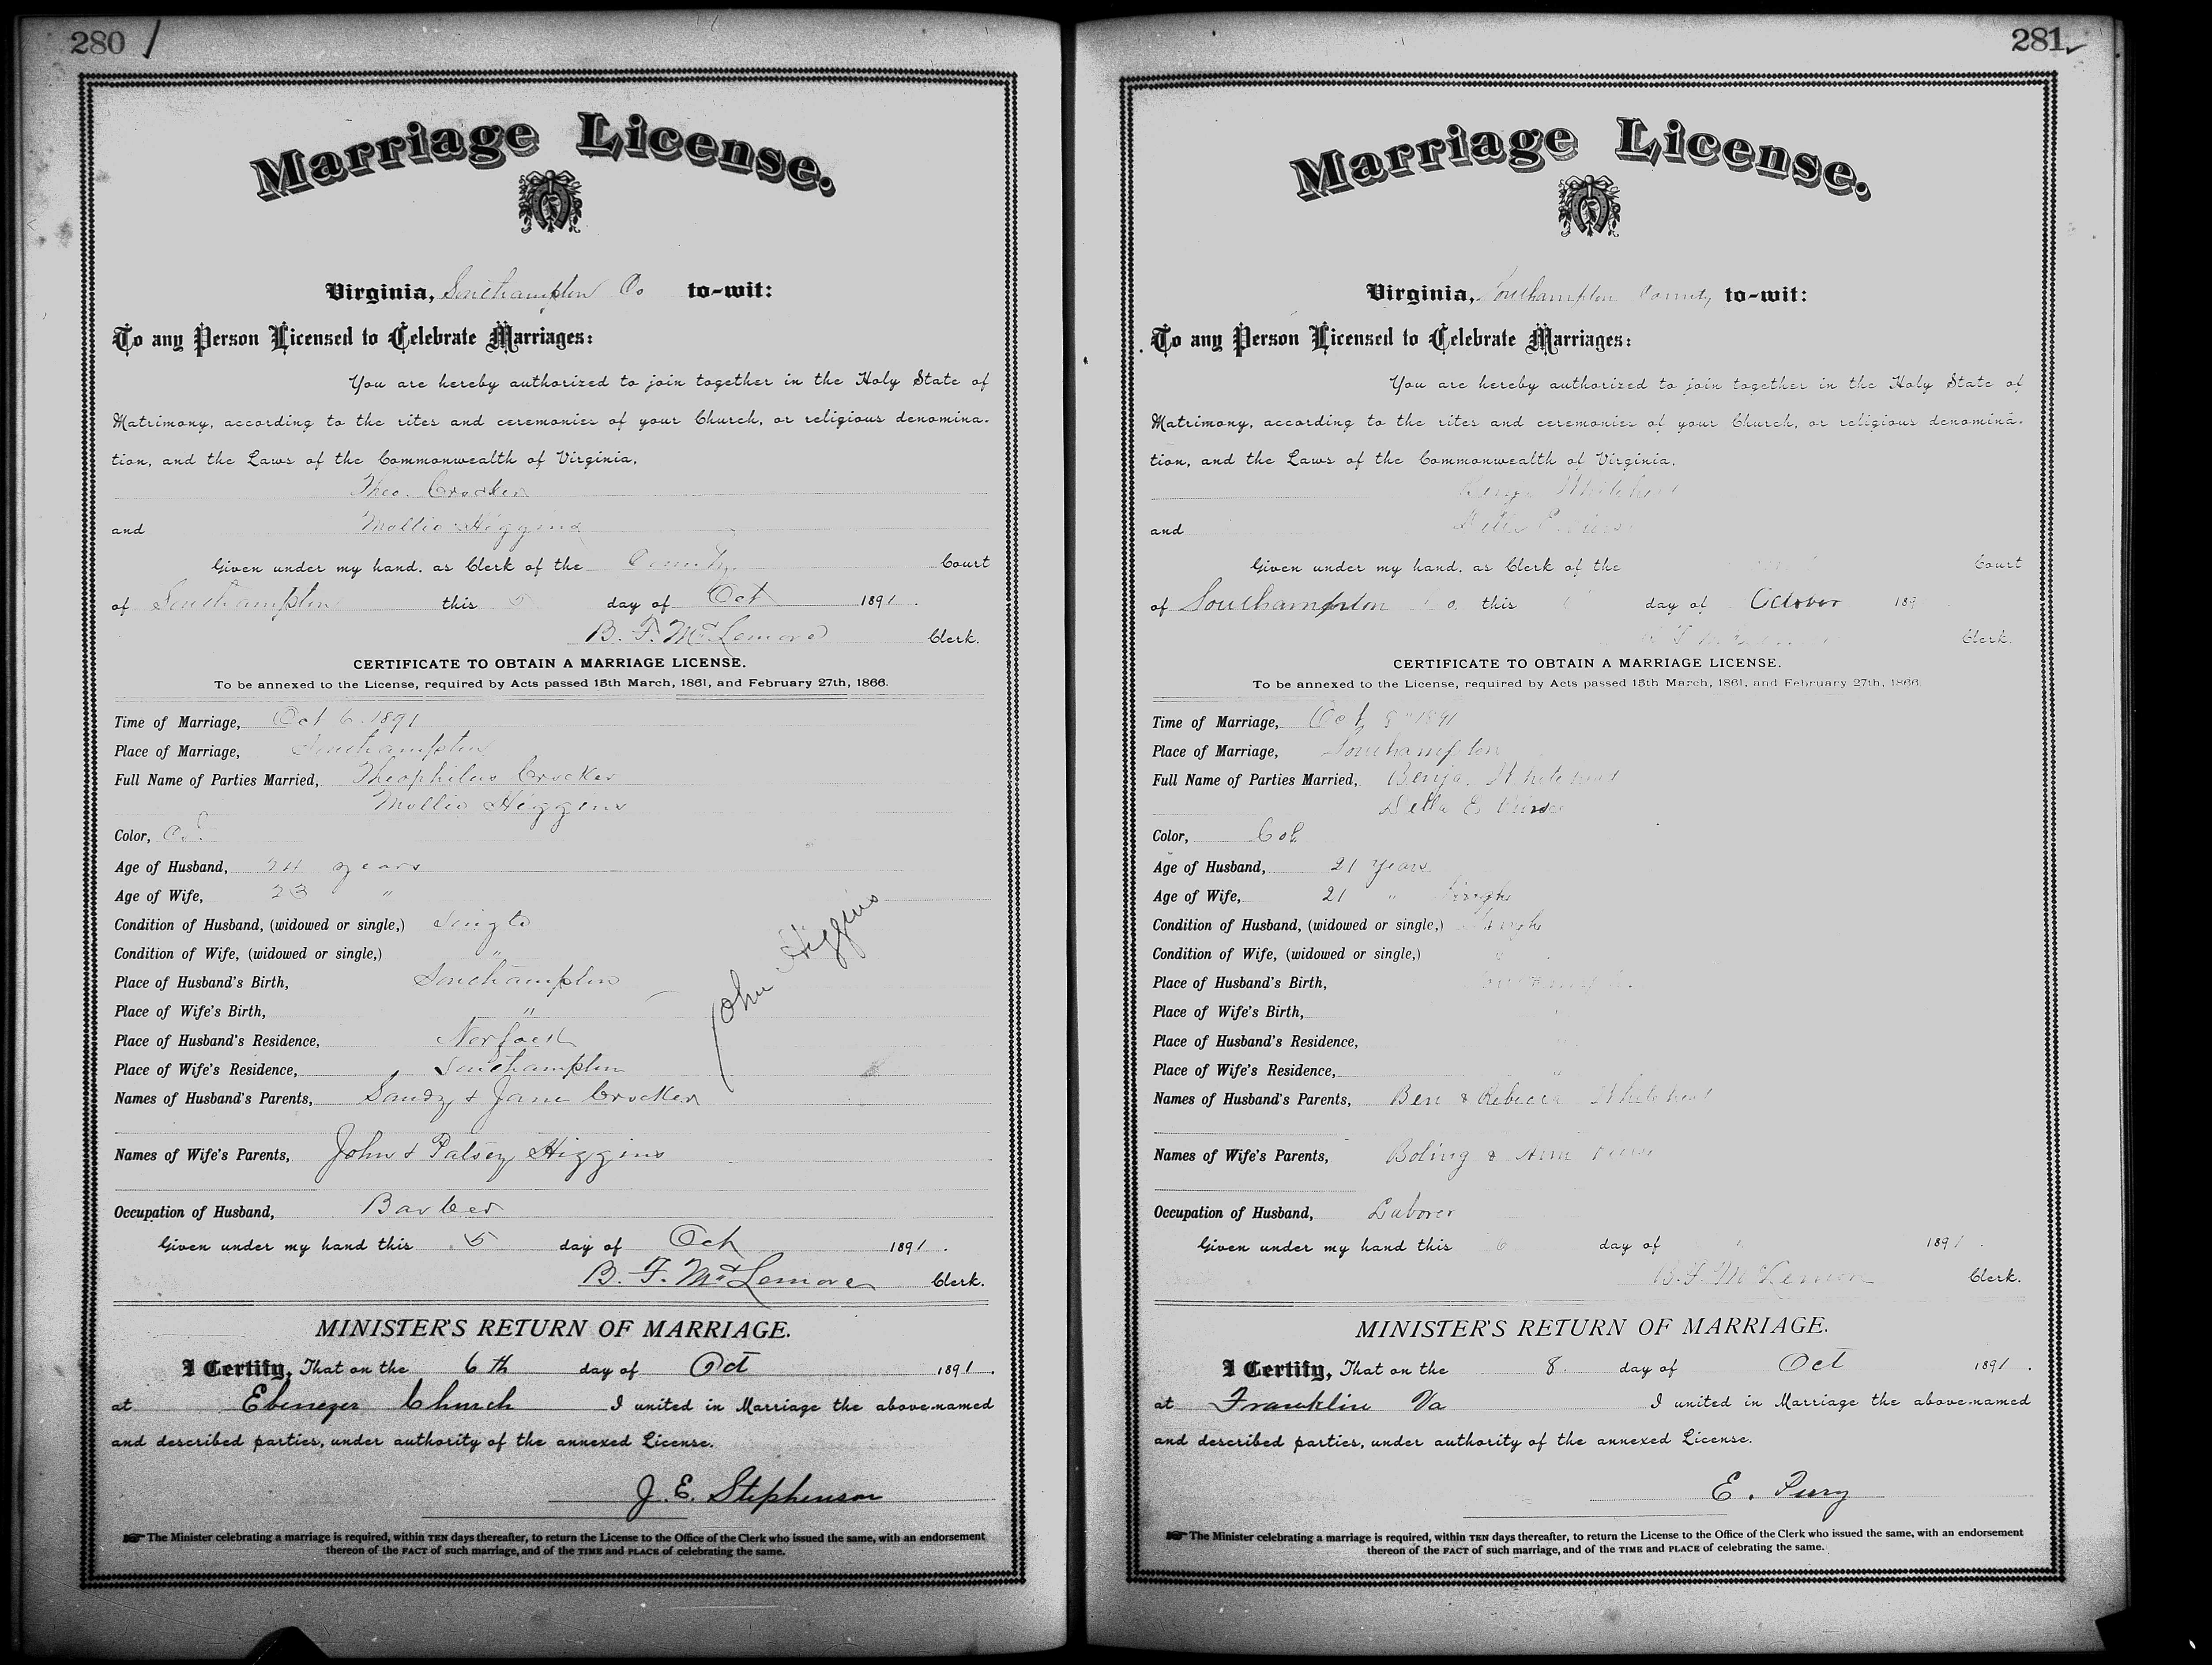 280
Marriage License.
Virginia, Southampton Co to-wit:
To any Person Licensed to Celebrate Marriages:
You are hereby authorized to join together in the Holy State of
Matrimony, according to the rites and ceremonies of your Church, or religious denomina-
tion, and the Laws of the Commonwealth of Virginia,
Theo. Crocker
and Mollie Higgins
Given under my hand, as Clerk of the County Court
of Southampton this 5 day of Oct 1891.
B. F. McLemore Clerk.
CERTIFICATE TO OBTAIN A MARRIAGE LICENSE.
To be annexed to the License, required by Acts passed 15th March, 1861, and February 27th, 1866.
Time of Marriage, Oct 6 1891
Place of Marriage, Southampton
Full Name of Parties Married, Theophilus Crocker
Mollie Higgins
Color, Col
Age of Husband, 24 years
Age of Wife, 23 "
Condition of Husband, (widowed or single,) Single
Condition of Wife, (widowed or single,) "
Place of Husband's Birth, Southampton
Place of Wife's Birth, "
Place of Husband's Residence, Norfolk
Place of Wife's Residence, Southampton
Names of Husband's Parents, Sandy & Jane Crocker
John Higgins
Names of Wife's Parents, John & Patsey Higgins
Occupation of Husband, Barber
Given under my hand this 5 day of Oct 1891.
B. F. McLemore Clerk.
MINISTER'S RETURN OF MARRIAGE.
I Certify, That on the 6th day of Oct 1891.
at Ebenezer Church I united in Marriage the above-named
and described parties, under authority of the annexed License.
J. E. Stephenson
The Minister celebrating a marriage is required, within TEN days thereafter, to return the License to the Office of the Clerk who issued the same, with an endorsement
thereon of the FACT of such marriage, and of the TIME and PLACE of celebrating the same.
281
Marriage License.
Virginia, Southampton County to-wit:
To any Person Licensed to Celebrate Marriages:
You are hereby authorized to join together in the Holy State of
Matrimony, according to the rites and ceremonies of your Church, or religious denomina-
tion, and the Laws of the Commonwealth of Virginia,
Benja Whitehead
and Della E.
Given under my hand, as Clerk of the Court
of Southampton Co. this day of October 189
Clerk.
CERTIFICATE TO OBTAIN A MARRIAGE LICENSE.
To be annexed to the License, required by Acts passed 15th March, 1861, and February 27th, 1866.
Time of Marriage, Oct 1891
Place of Marriage, Southampton
Full Name of Parties Married, Benja. Whitehead
Della E
Color, Col
Age of Husband, 21 years
Age of Wife, 21 " Single
Condition of Husband, (widowed or single,) Single
Condition of Wife, (widowed or single,) "
Place of Husband's Birth, Southampton
Place of Wife's Birth,
Place of Husband's Residence, "
Place of Wife's Residence, "
Names of Husband's Parents, Ben & Rebecca Whitehead
Names of Wife's Parents, Boling & Ann
Occupation of Husband, Laborer
Given under my hand this 6 day of " 1891.
B. F. McLemore Clerk.
MINISTER'S RETURN OF MARRIAGE.
I Certify, That on the 8 day of Oct 1891.
at Franklin Va I united in Marriage the above-named
and described parties, under authority of the annexed License.
E.
The Minister celebrating a marriage is required, within TEN days thereafter, to return the License to the Office of the Clerk who issued the same, with an endorsement
thereon of the FACT of such marriage, and of the TIME and PLACE of celebrating the same.